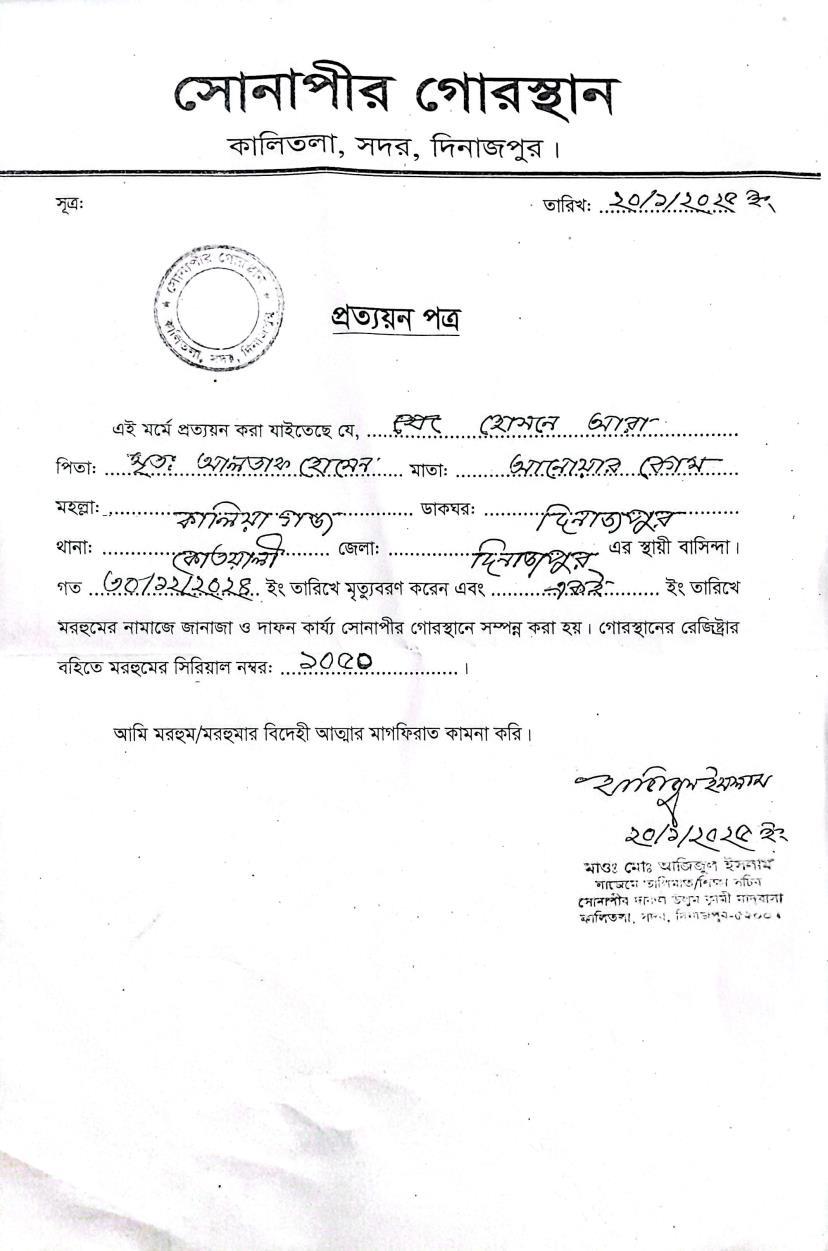 সোনাপীর গোরস্থান
কালিতলা, সদর, দিনাজপুর।
সূত্র: তারিখ: ২০/১/২০২৫ ইং
সোনাপীর গোরস্থান
কালিতলা, সদর, দিনাজপুর
প্রত্যয়ন পত্র
এই মর্মে প্রত্যয়ন করা যাইতেছে যে, হোসনে আরা
পিতা: মৃত: আলতাফ হোসেন মাতা: আনোয়ার বেগম
মহল্লা: কালিয়া গঞ্জ ডাকঘর: দিনাজপুর
থানা: কোতয়ালী জেলা: দিনাজপুর এর স্থায়ী বাসিন্দা।
গত ৩০/১২/২০২৪ ইং তারিখে মৃত্যুবরণ করেন এবং একই ইং তারিখে
মরহুমের নামাজে জানাজা ও দাফন কার্য্য সোনাপীর গোরস্থানে সম্পন্ন করা হয়। গোরস্থানের রেজিষ্ট্রার
বহিতে মরহুমের সিরিয়াল নম্বর: ১০৫০।
আমি মরহুম/মরহুমার বিদেহী আত্মার মাগফিরাত কামনা করি।
২০/১/২০২৫ ইং
মাওঃ মোঃ আজিজুল ইসলাম
সোনাপীর
কালিতলা, সদর, দিনাজপুর-৫২০০।